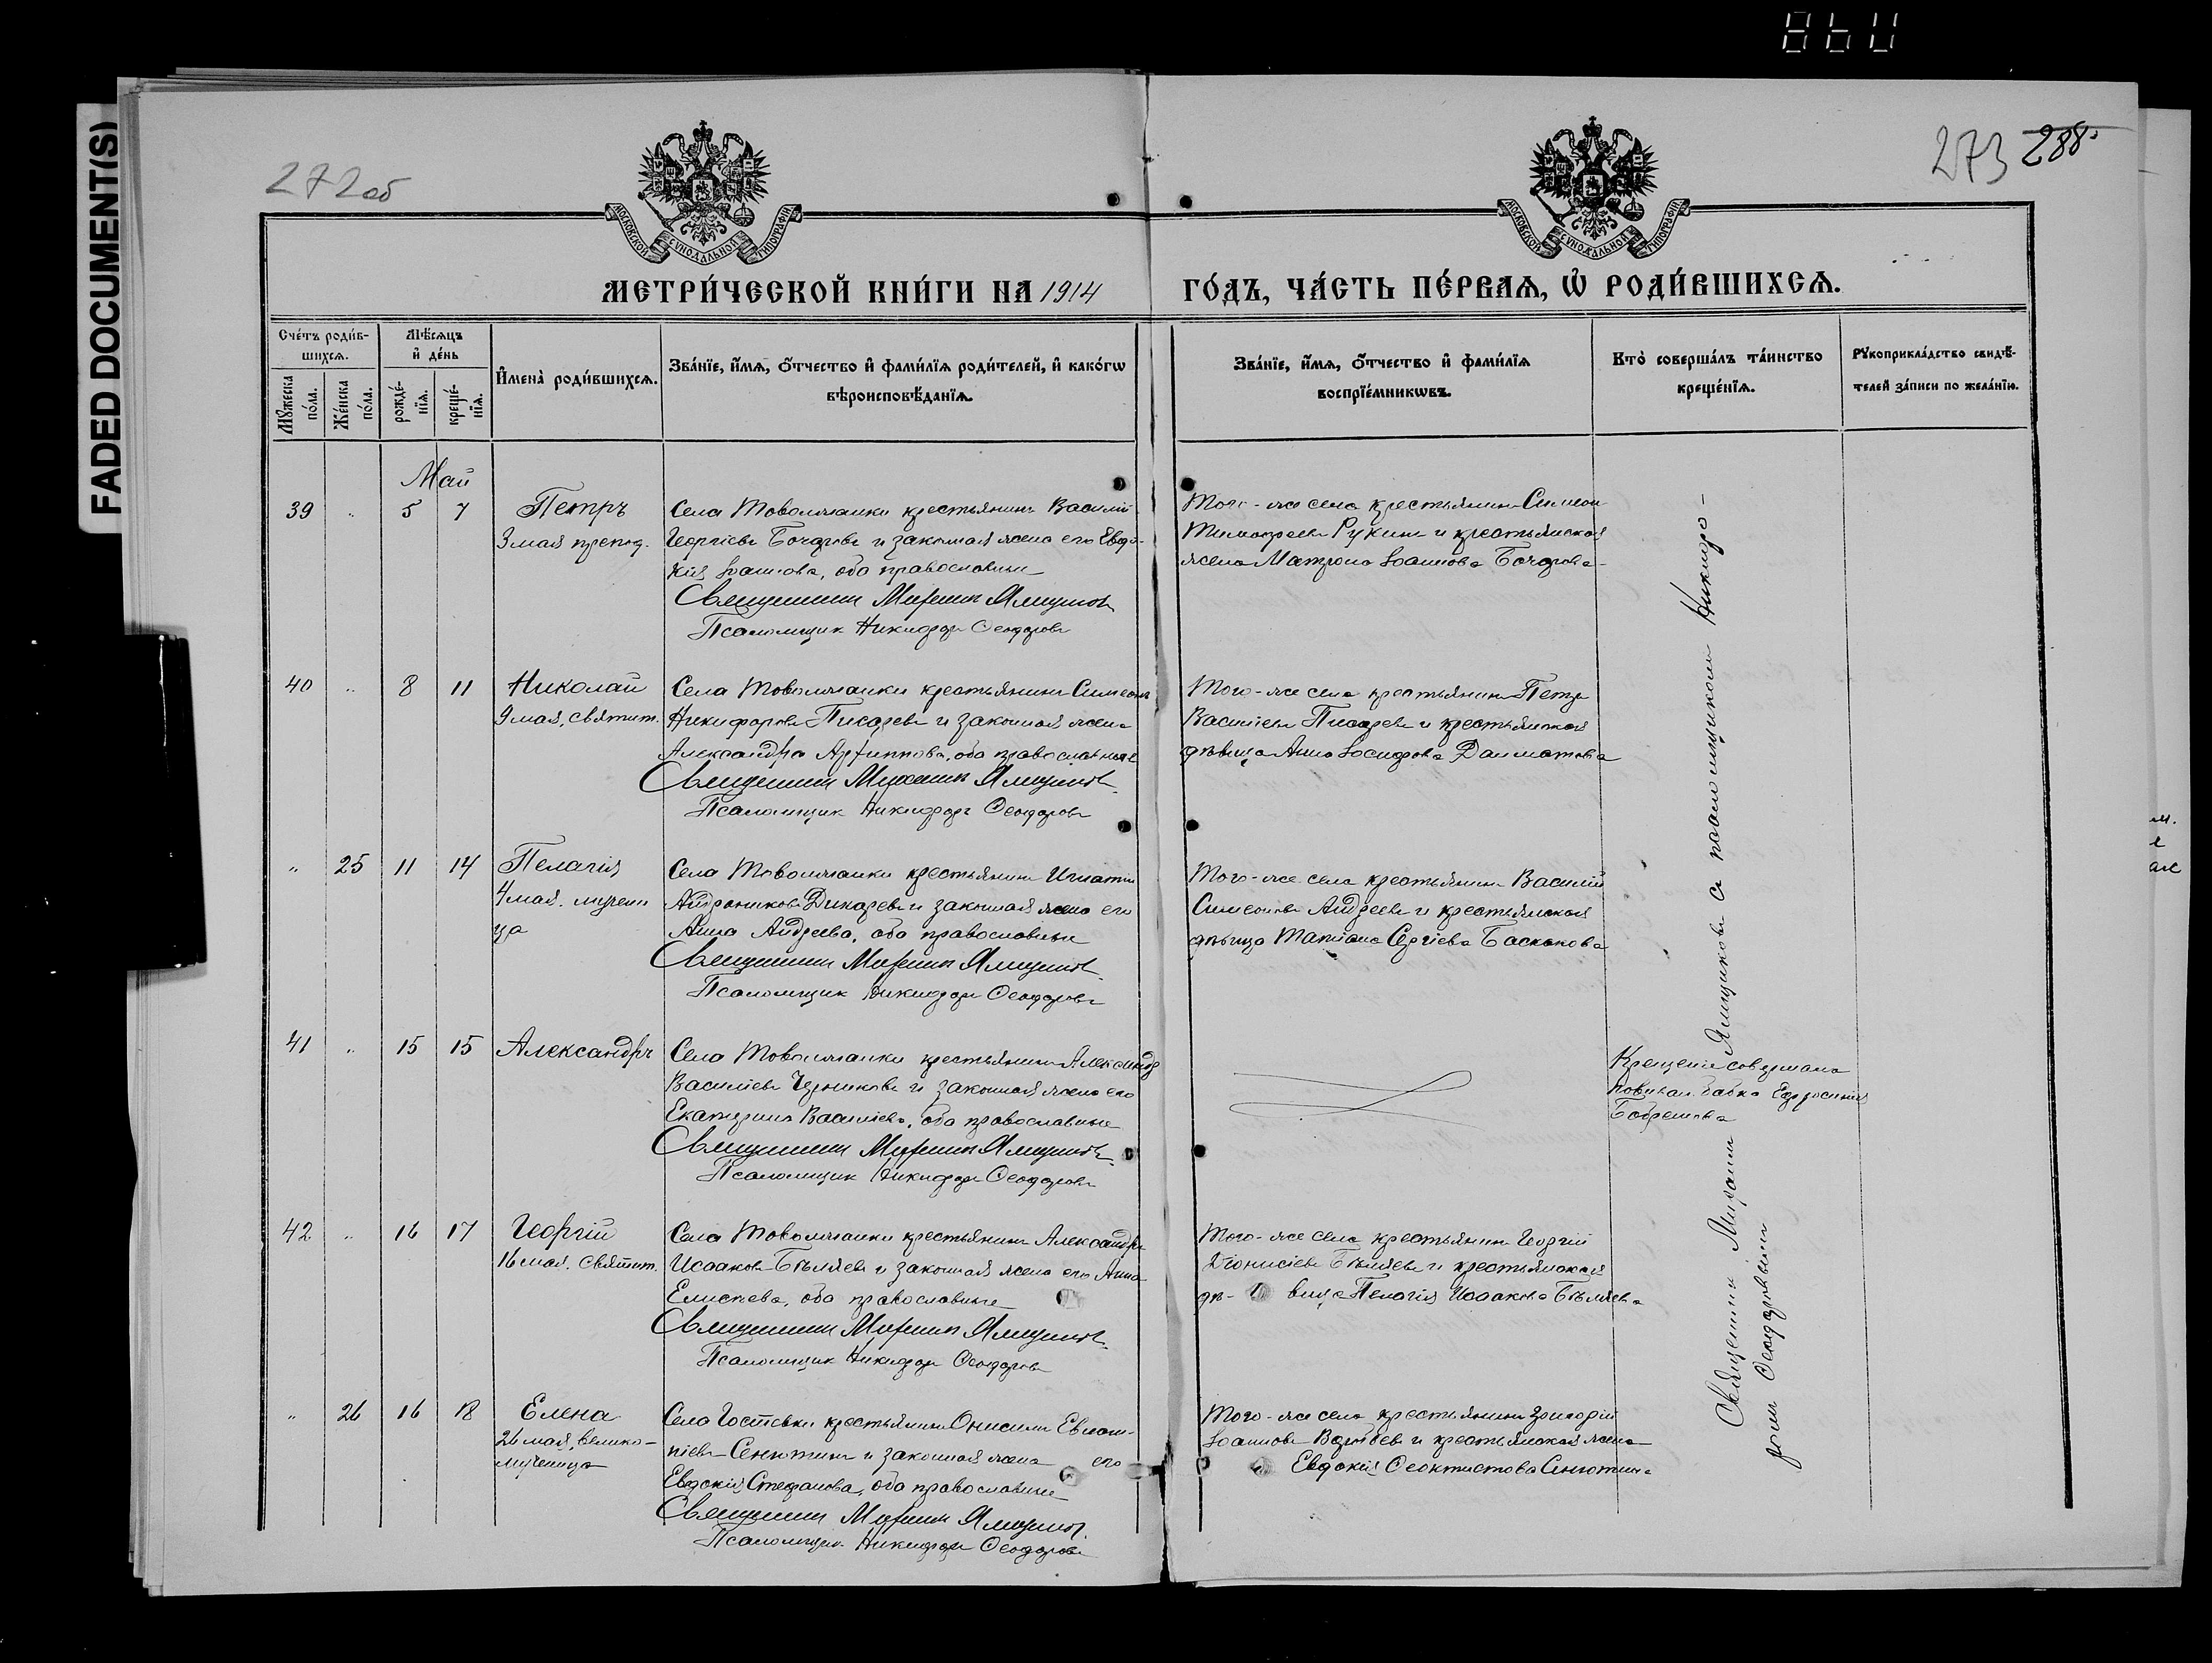 FADED DOCUMENT(S)
272 об
273 288
МОСКОВСКОЙ СѴНОДАЛЬНОЙ ТИПОГРАФІИ
МОСКОВСКОЙ СѴНОДАЛЬНОЙ ТИПОГРАФІИ
МЕТРИ́ЧЕСКОЙ КНИ́ГИ НА 1914 ГО́ДЪ, ЧА́СТЬ ПЕ́РВАѦ, Ѡ҆ РОДИ́ВШИХСѦ.
Сче́тъ роди́в-
шихсѧ.
Мꙋ́жеска
по́ла.
Же́нска
по́ла.
Мѣ́сѧцъ
и҆ де́нь
рожде́-
нїѧ.
креще́-
нїѧ.
И҆мена̀ роди́вшихсѧ.
Зва́нїе, и҆́мѧ, ѻ҆́тчество и҆ фами́лїѧ роди́телей, и҆ како́гѡ
вѣроисповѣ́данїѧ.
Зва́нїе, и҆́мѧ, ѻ҆́тчество и҆ фами́лїѧ
воспрїе́мникѡвъ.
Кто̀ соверша́лъ та́инство
креще́нїѧ.
Рꙋкоприкла́дство свидѣ́-
телей за́писи по жела́нїю.
Май
39 " 5 7 Петръ
3 мая препод.
Села Товолжанки крестьянинъ Василій
Георгіевъ Бочаровъ и законная жена его Евдо-
кія Іоаннова, оба православные
Священникъ Михаилъ Ямщиковъ
Псаломщик Никифоръ Ѳеодоровъ
Того-же села крестьянинъ Симеонъ
Тимофеевъ Рукинъ и крестьянская
жена Матрона Іоаннова Бочарова
40 " 8 11 Николай
9 мая, святит.
Села Товолжанки крестьянинъ Симеонъ
Никифоровъ Писаревъ и законная жена
Александра Архиппова, оба православные
Священникъ Михаилъ Ямщиковъ
Псаломщик Никифоръ Ѳеодоровъ
Того-же села крестьянинъ Петръ
Василіевъ Писаревъ и крестьянская
дѣвица Анна Іосифова Далматова
" 25 11 14 Пелагія
4 мая. мучени
ца
Села Товолжанки крестьянинъ Игнатій
Андрониковъ Дикаревъ и законная жена его
Анна Андреева, оба православные
Священникъ Михаилъ Ямщиковъ
Псаломщик Никифоръ Ѳеодоровъ
Того-же села крестьянинъ Василій
Симеоновъ Андреевъ и крестьянская
дѣвица Татіана Сергіева Баскакова
41 " 15 15 Александръ
Села Товолжанки крестьянинъ Александр
Василіевъ Черниковъ и законная жена его
Екатерина Василіева, оба православные
Священникъ Михаилъ Ямщиковъ
Псаломщик Никифоръ Ѳеодоровъ
Крещеніе совершала
повивал. бабка Ефросинія
42 " 16 17 Георгій
16 мая. святит.
Села Товолжанки крестьянинъ Александръ
Исааковъ Бѣляевъ и законная жена его Анна
Елисеева, оба православные
Священникъ Михаилъ Ямщиковъ
Псаломщик Никифоръ Ѳеодоровъ
Того-же села крестьянинъ Георгій
Діонисіевъ Бѣляевъ и крестьянская
дѣ- вица Пелагія Исаакова Бѣляева
" 26 16 18 Елена
26 мая, велико-
мученица
Села Гостевки крестьянинъ Онисимъ Евлам-
піевъ Сенютинъ и законная жена его
Евдокія Стефанова, оба православные
Священникъ Михаилъ Ямщиковъ
Псаломщик Никифоръ Ѳеодоровъ
Того-же села крестьянинъ Григорій
Іоанновъ и крестьянская жена
Евдокія Ѳеоктистова Сенютина
Священникъ Михаилъ Ямщиковъ съ псаломщикомъ Никифо-
ромъ Ѳеодоровымъ